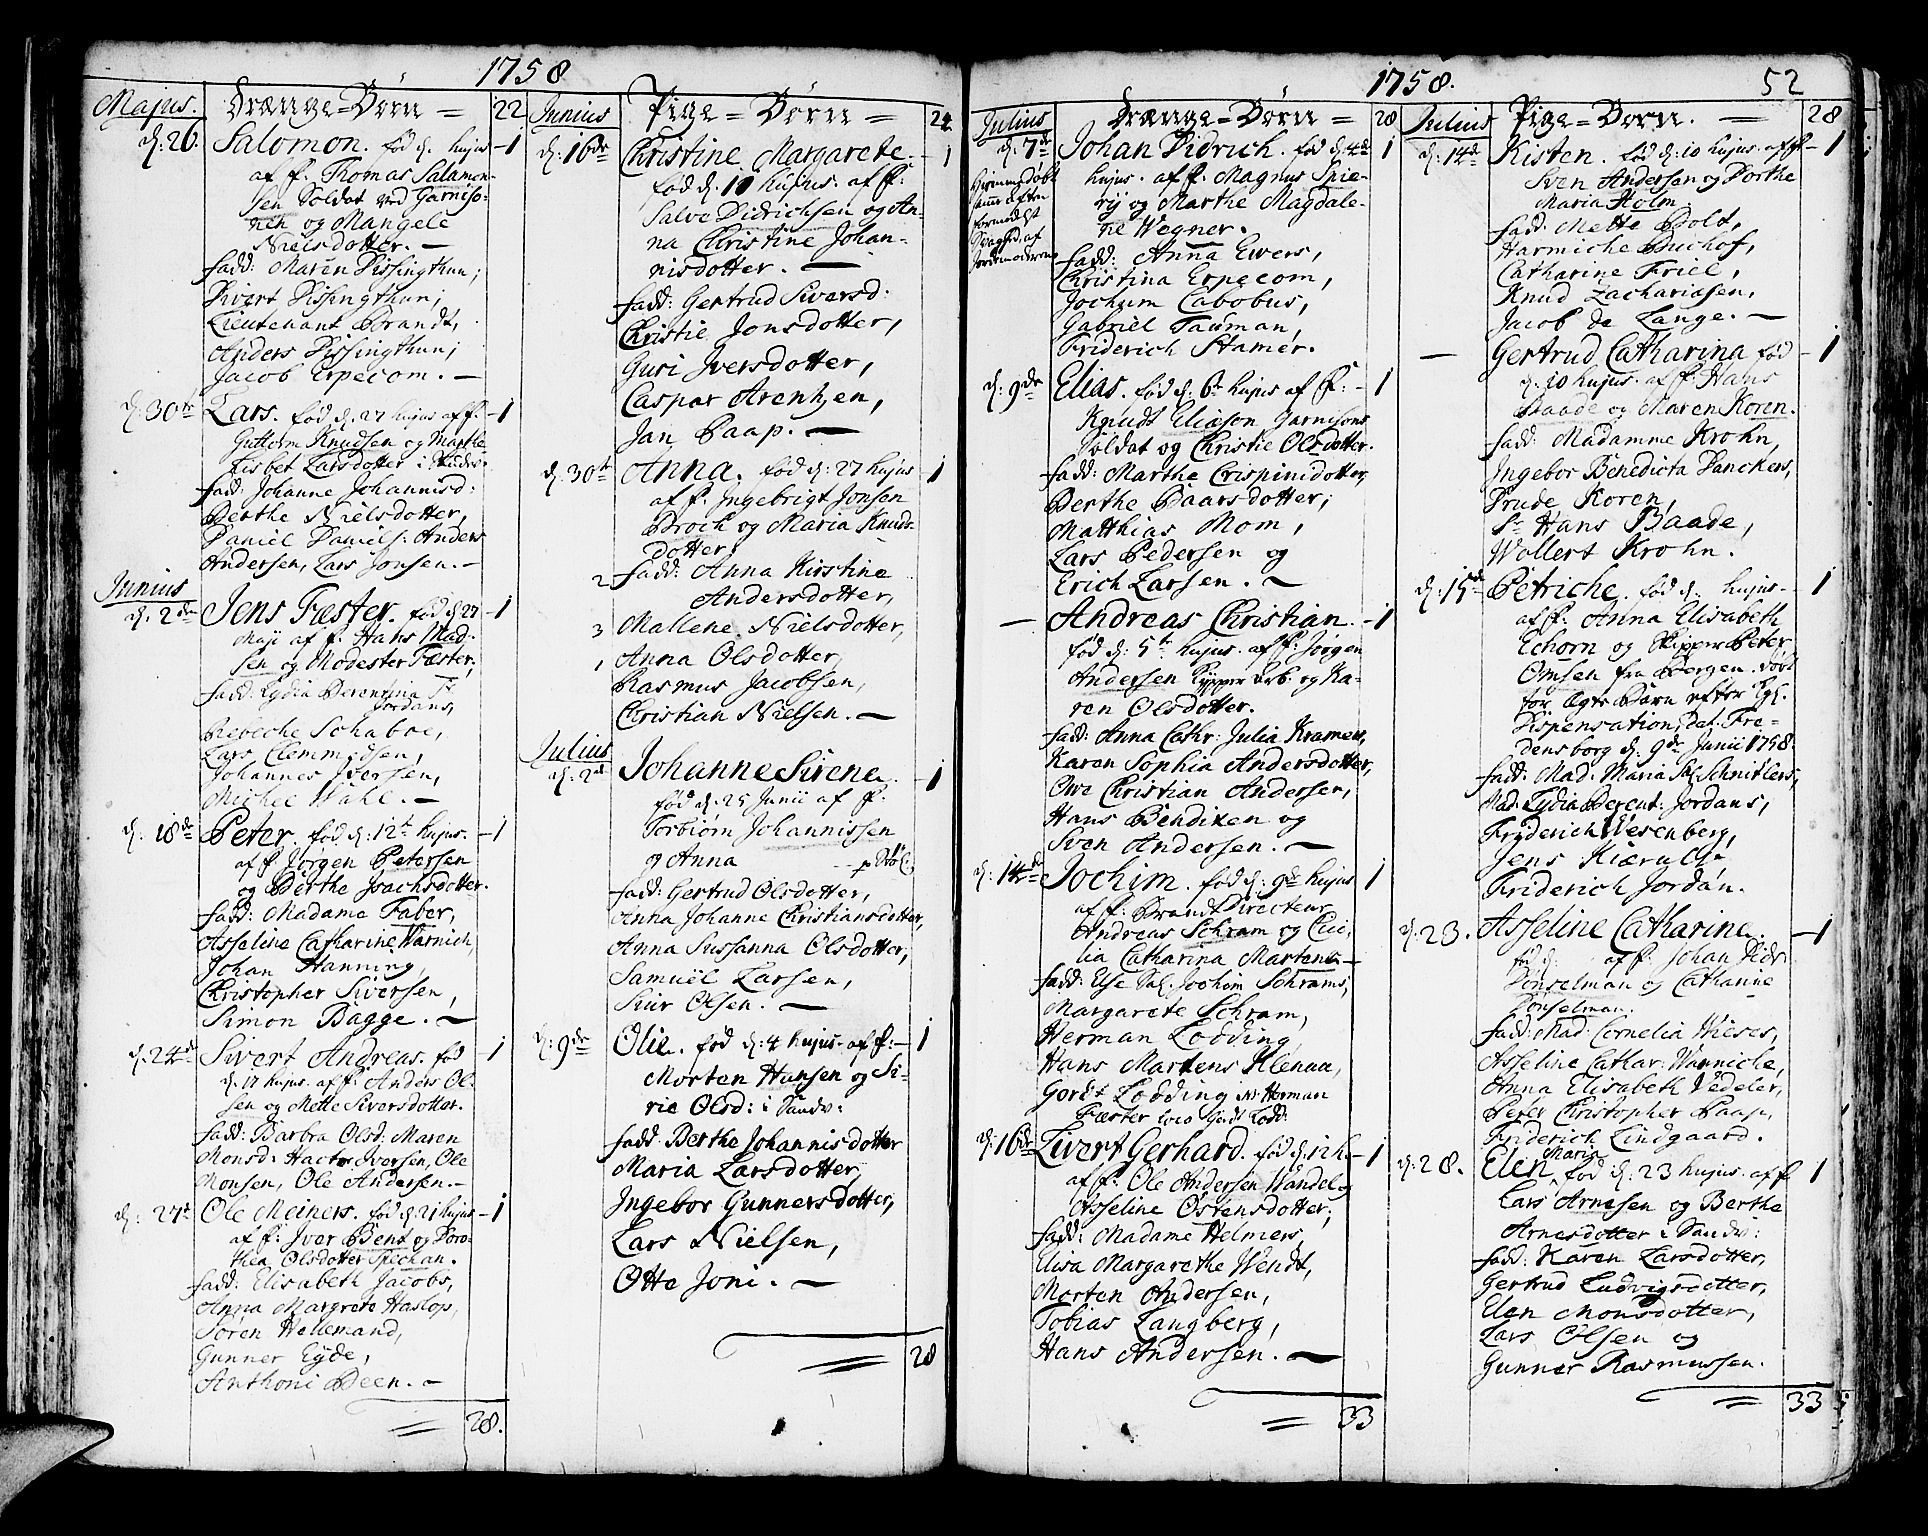 1758
Majus. Drænge=Børn = 22
d: 26. Salomon. fød d. hujus - 1
af F. Thomas Salamon-
sen Soldat ved Garniso-
nen og Mangele
Nielsdotter. —
fadd: Maren Dissingthun;
Sivert Dissingthun;
Lieutenant Brandt,
Anders Dissingthun;
Jacob Erpecom. —
d: 30te Lars. fød d. 27 hujus af F. - 1
Guttorm Knudsen og Marthe
Lisbet Larsdotter i Sudv:
fadd: Johanne Johannisd:
Berthe Nielsdotter,
Daniel Daniels: Anders
Andersen, Lars Jonsen. —
Junius
d: 2den Jens Fæster. fød d 27 - 1
Maji af F. Hans Mad-
sen og Modester Fæster,
fadd: Lydia Berentina Fr
Jordans,
Rebeche Schabor,
Lars Clemmedsen,
Johannes Iversen,
Michel Wahl. —
d: 18de Peter. fød d: 12t hujus. - 1
af F. Jørgen Petersen
og Berthe Isachsdotter.
fadd: Madame Faber,
Asseline Catharine Warnich,
Johan Hanning,
Christopher Siversen,
Simon Bagge. —
d: 24de Sivert Andreas. fød - 1
d. 17 hujus. af F. Anders Ol-
sen og Mette Siversdotter.
fadd: Barbra Olsd: Maren
Monsd: Hactor Iversen, Ole
Monsen, Ole Andersen. —
d: 27t Ole Meiners. fød d. 21 hujus - 1
af F. Iver Bent og Doro-
thea Olsdotter Spichan.
fadd: Elisabeth Jacobs,
Anna Margrete Haslop,
Søren Hellemand,
Gunner Eyde,
Anthoni Been. —
= 28.
Junius Pige=Børn = 24
d: 16de Christine Margarete. - 1
fød d. 11 hujus. af F:
Salve Didrichsen og An-
na Christine Johan-
nisdotter. —
fadd: Gertrud Siversd:
Christie Jonsdotter,
Guri Iversdotter,
Caspar Arentzen,
Jan Paap. —
d: 30te Anna. fød d: 27 hujus - 1
af F. Ingebrigt Jonsen
Broch og Maria Knuds-
dotter.
2 fadd: Anna Kirstine
Andersdotter,
3 Mallene Nielsdotter,
1 Anna Olsdotter,
Rasmus Jacobsen,
Christian Nielsen. —
Julius
d: 2den Johanne Sirena. - 1
fød d. 25 Junii af F.
Torbiørn Johannissen
og Anna
fadd: Gertrud Olsdotter,
Anna Johanne Christiansdotter,
Anna Sussanna Olsdotter,
Samuel Larsen,
Siur Olsen. —
d: 9de Olie. fød d: 4 hujus. af F: - 1
Morten Hansen og Si-
rie Olsd: i Sandv:
fadd: Berthe Johannisdotter
Maria Larsdotter,
Ingebor Gunnersdotter,
Lars Nielsen,
Otte Joni. —
= 28
1758. 52
Julius Drænge=Børn = 28
d: 7de Johan Didrich. fød d. 4de 1
hujus. af F. Magnus Spie-
rij og Marthe Magdale-
ne Wegner.
Hiemmedøbt
samme aften
formedelst
Svaghed af
Jordemoderen
fadd: Anna Ewers,
Christina Erpecom,
Jochum Cabobus,
Gabriel Tauman,
Friderich Stamer.
d: 9de Elias. fød d. 6te hujus af F: - 1
Knudt Eliason Garnisons
Soldat og Christie Olsdotter.
fadd: Marthe Crispinidotter,
Berthe Baarsdotter,
Matthias Mom,
Lars Pedersen og
Erich Larsen. —
— Andreas Christian. - 1
fød d. 5t hujus. af F: Jørgen
Andersen og Ka-
ren Olsdotter.
fadd: Anna Cathr: Julia Kramers,
Karen Sophia Andersdotter,
Owe Christian Andersen,
Hans Bendixen og
Sven Andersen. —
d: 14de Jochim. fød d. 9de hujus 1
af F. Brandt Directeur
Andreas Schram og Ceci-
lia Catharina Martens —
fadd: Else Sal. Jochim Schrams,
Margarete Schram,
Herman Lodding,
Hans Martens Klenau,
Gordt Lodding NB Herman
Fæster Gordt Lodd:
d: 16de Livert Gerhard. fød d. 12 h. - 1
af F. Ole Andersen Wandel og
Asseline Østensdotter,
fadd: Madame Helmers,
Elisa Margarethe Wendt,
Morten Andersen,
Tobias Langberg,
Hans Andersen. —
= 33
Julius Pige=Børn. — 28
d: 14de Kisten. fød d: 10 hujus. af F. - 1
Sven Andersen og Dorthe
Maria Holm
fadd: Mette Bolt,
Harmiche Buchof,
Catharine Friel,
Knud Zachariasen,
Jacob de Lange. —
— Gertrud Catharina fød - 1
d: 10 hujus. af F: Hans
Baade og Maren Koren.
fadd: Madamme Krohn,
Ingebor Benedicta Danckens,
Drude Koren,
Sr Hans Baade,
Wollert Krohn.
d: 15de Petriche. fød d. hujus. - 1
af F. Anna Elisabeth
Echorn og Skipper Peter
Omsen fra Bergen. døbt
for Ægte Barn efter Kgl.
Dispensation, Dat: Fre-
densborg d. 9de Junii 1758.
fadd: Mad. Maria Sal. Schnitlers,
Mad: Lydia Berent: Jordans,
Fryderich Wesenberg,
Jens Kiærulf,
Friderich Jordan.
d: 23. Asseline Catharine. - 1
fød d: af F. Johan Didr
Dønselman og Catharine
Dønselman.
fadd: Mad: Cornelia Wieses,
Asseline Cathar: Warniche,
Anna Elisabeth Vedeler,
Peter Christopher Paap,
Friderich Lindgaard.
d: 28. Elen Maria fød d. 23 hujus. af F. 1
Lars Arnesen og Berthe
Arnesdotter i Sandv:
fadd: Karen Larsdotter,
Gertrud Ludvigsdotter,
Elen Monsdotter,
Lars Olsen og
Gunner Rasmussen.
= 33